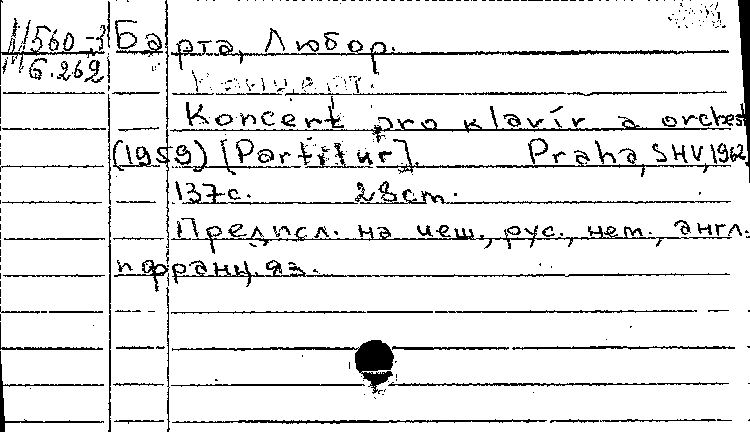 М560-3 Барта, Любор.
6.262
Концерт.
Koncert pro klavír a orchest
(1959) [Partitur]. Praha, SHV, 1962,
137с. 28cm.
Предисл. на чеш., рус., нем., англ.
и франц. яз.